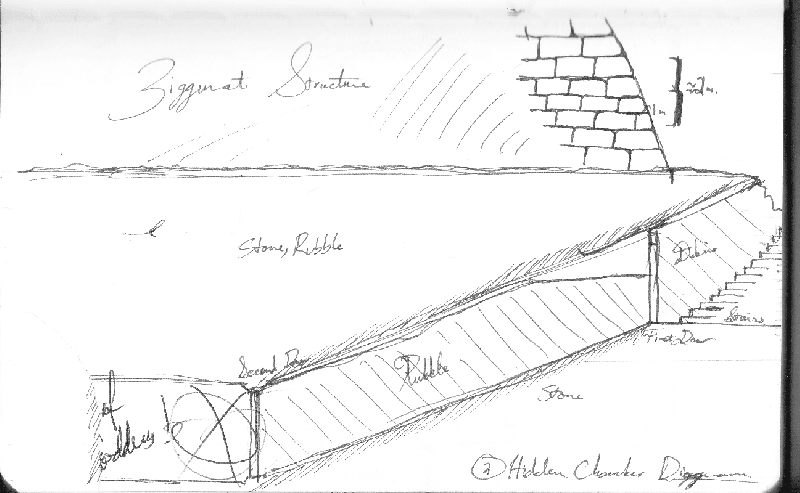 Ziggurat Structure
1m
Stone, Rubble
Debris
Stairs
First Door
Second Door
Rubble
Stone
of
Goddess!
② Hidden Chamber